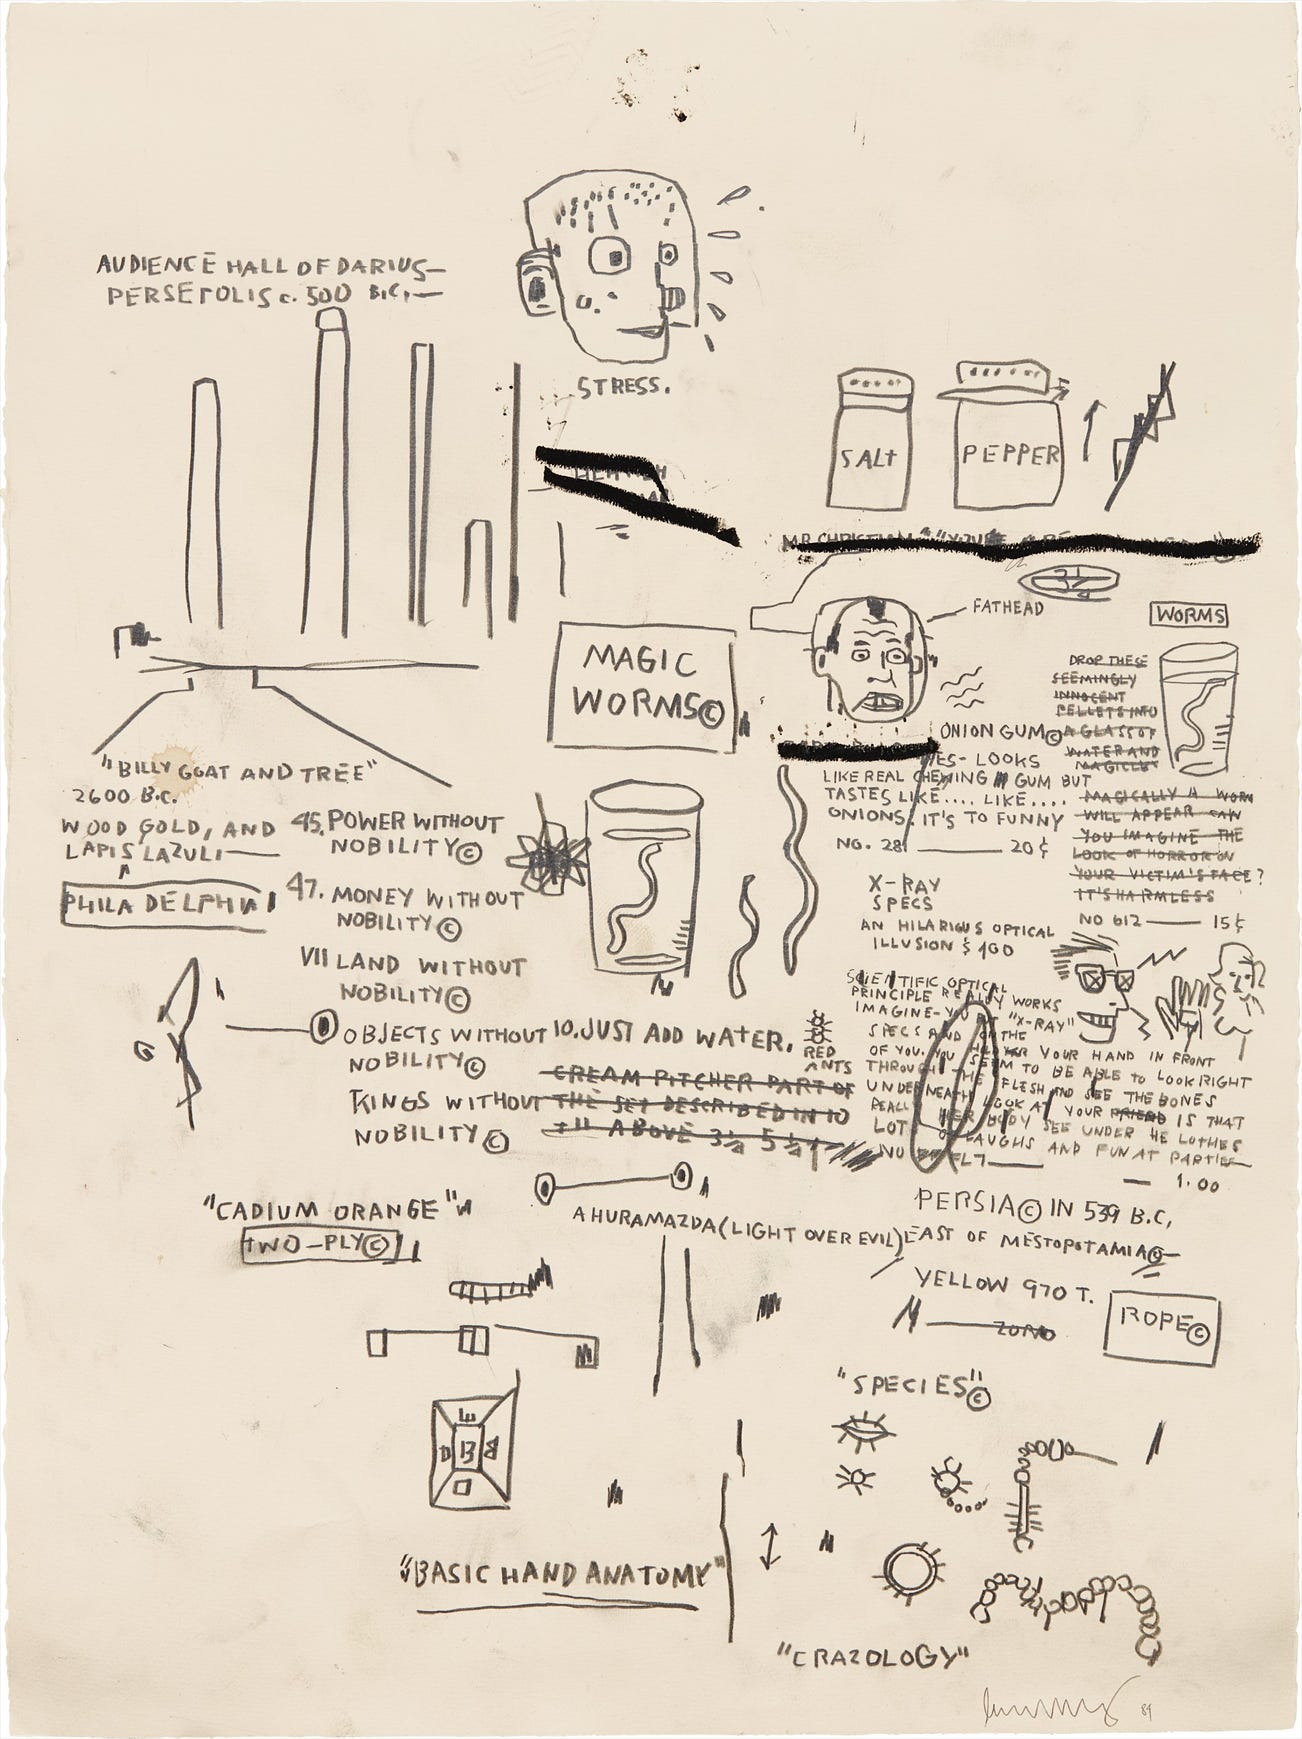 AUDIENCE HALL OF DARIUS—
PERSEPOLIS c. 500 B.C.—
STRESS.
SALT
PEPPER
MR. CHRISTIAN
3½
FATHEAD
WORMS
MAGIC
WORMS©
DROP THESE
SEEMINGLY
INNOCENT
PELLETS INTO
A GLASS OF
WATER AND
MAGICLLY
MAGICALLY A WORM
WILL APPEAR CAN
YOU IMAGINE THE
LOOK OF HORROR ON
YOUR VICTIM'S FACE?
IT'S HARMLESS
NO 612 —— 15¢
ONION GUM©
ES- LOOKS
LIKE REAL CHEWING GUM BUT
TASTES LIKE.... LIKE....
ONIONS. IT'S TO FUNNY
NO. 281 —— 20¢
X-RAY
SPECS
AN HILARIOUS OPTICAL
ILLUSION $ 100
SCIENTIFIC OPTICAL
PRINCIPLE REALLY WORKS
IMAGINE- YOU PUT "X-RAY"
SPECS AND THE
OF YOU. YOU YOUR HAND IN FRONT
THROUGH THE SEEM TO BE ABLE TO LOOK RIGHT
UNDERNEATH FLESH AND SEE THE BONES
REALL LOOK AT YOUR FRIEND IS THAT
LOT HER BODY SEE UNDER HE CLOTHES
NO LAUGHS AND FUN AT PARTIES
— 1.00
"BILLY GOAT AND TREE"
2600 B.C.
WOOD, GOLD, AND
LAPIS LAZULI——
PHILADELPHIA
45. POWER WITHOUT
NOBILITY©
47. MONEY WITHOUT
NOBILITY©
VII LAND WITHOUT
NOBILITY©
OBJECTS WITHOUT
NOBILITY©
KINGS WITHOUT
NOBILITY©
10. JUST ADD WATER.
RED
ANTS
CREAM PITCHER PART OF
THE SET DESCRIBED IN 10
ABOVE 3½
"CADIUM ORANGE"
TWO-PLY©
AHURAMAZDA (LIGHT OVER EVIL)
PERSIA© IN 539 B.C,
EAST OF MESTOPOTAMIA©—
YELLOW 970 T.
ROPE©
"SPECIES"©
13
"BASIC HAND ANATOMY"
"CRAZOLOGY"